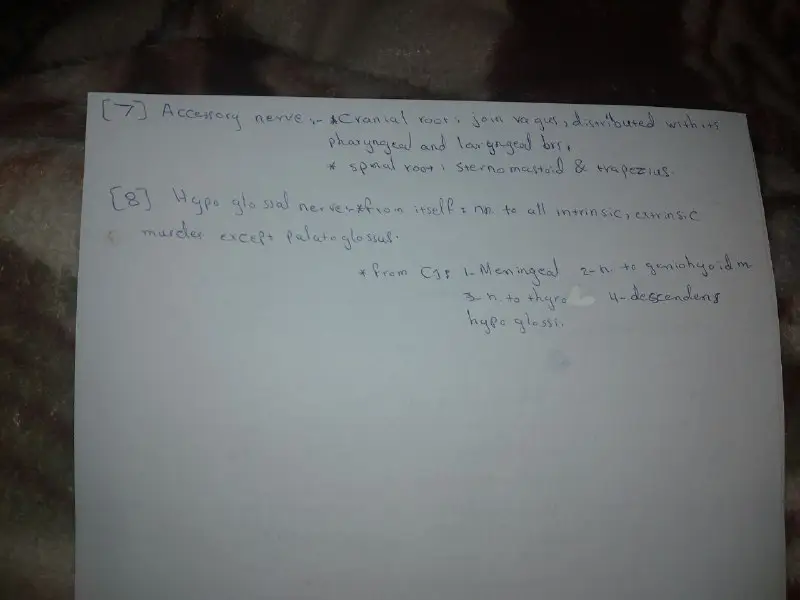 [7] Accessory nerve:- *Cranial root: join vagus, distributed with its
pharyngeal and laryngeal brs,
* spinal root: sternomastoid & trapezius.
[8] Hypo glossal nerve:- *from itself: nn. to all intrinsic, extrinsic
muscles except palatoglossus.
*from C1: 1-Meningeal 2-n. to geniohyoid m
3-n. to thyro 4-descendens
hypo glossi.